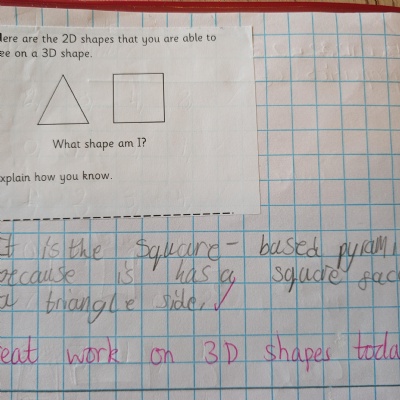 Here are the 2D shapes that you are able to
ee on a 3D shape.
What shape am I?
xplain how you know.
It is the square-based pyrami
because is has a square fac
a triangle side.
eat work on 3D shapes toda